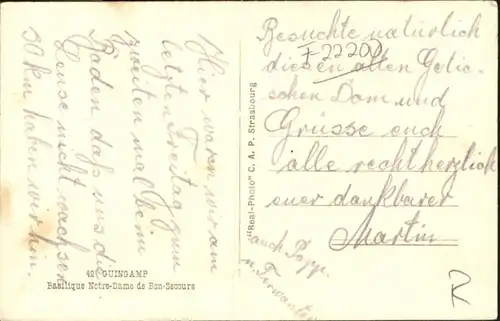 Hier waren wir am
letzten Freitag zum
zweiten mal beim
Baden daß uns die
Läuse nicht wachsen
30 km haben wir hin.
42 GUINGAMP
Basilique Notre-Dame de Bon-Secours
"Real-Photo" C. A. P. Strasbourg
Besuchte natürlich
F2220
diesen alten Goti-
schen Dom und
Grüsse euch
alle rechtherzlich
euer dankbarer
Martin
auch Papp.
u. Fr.